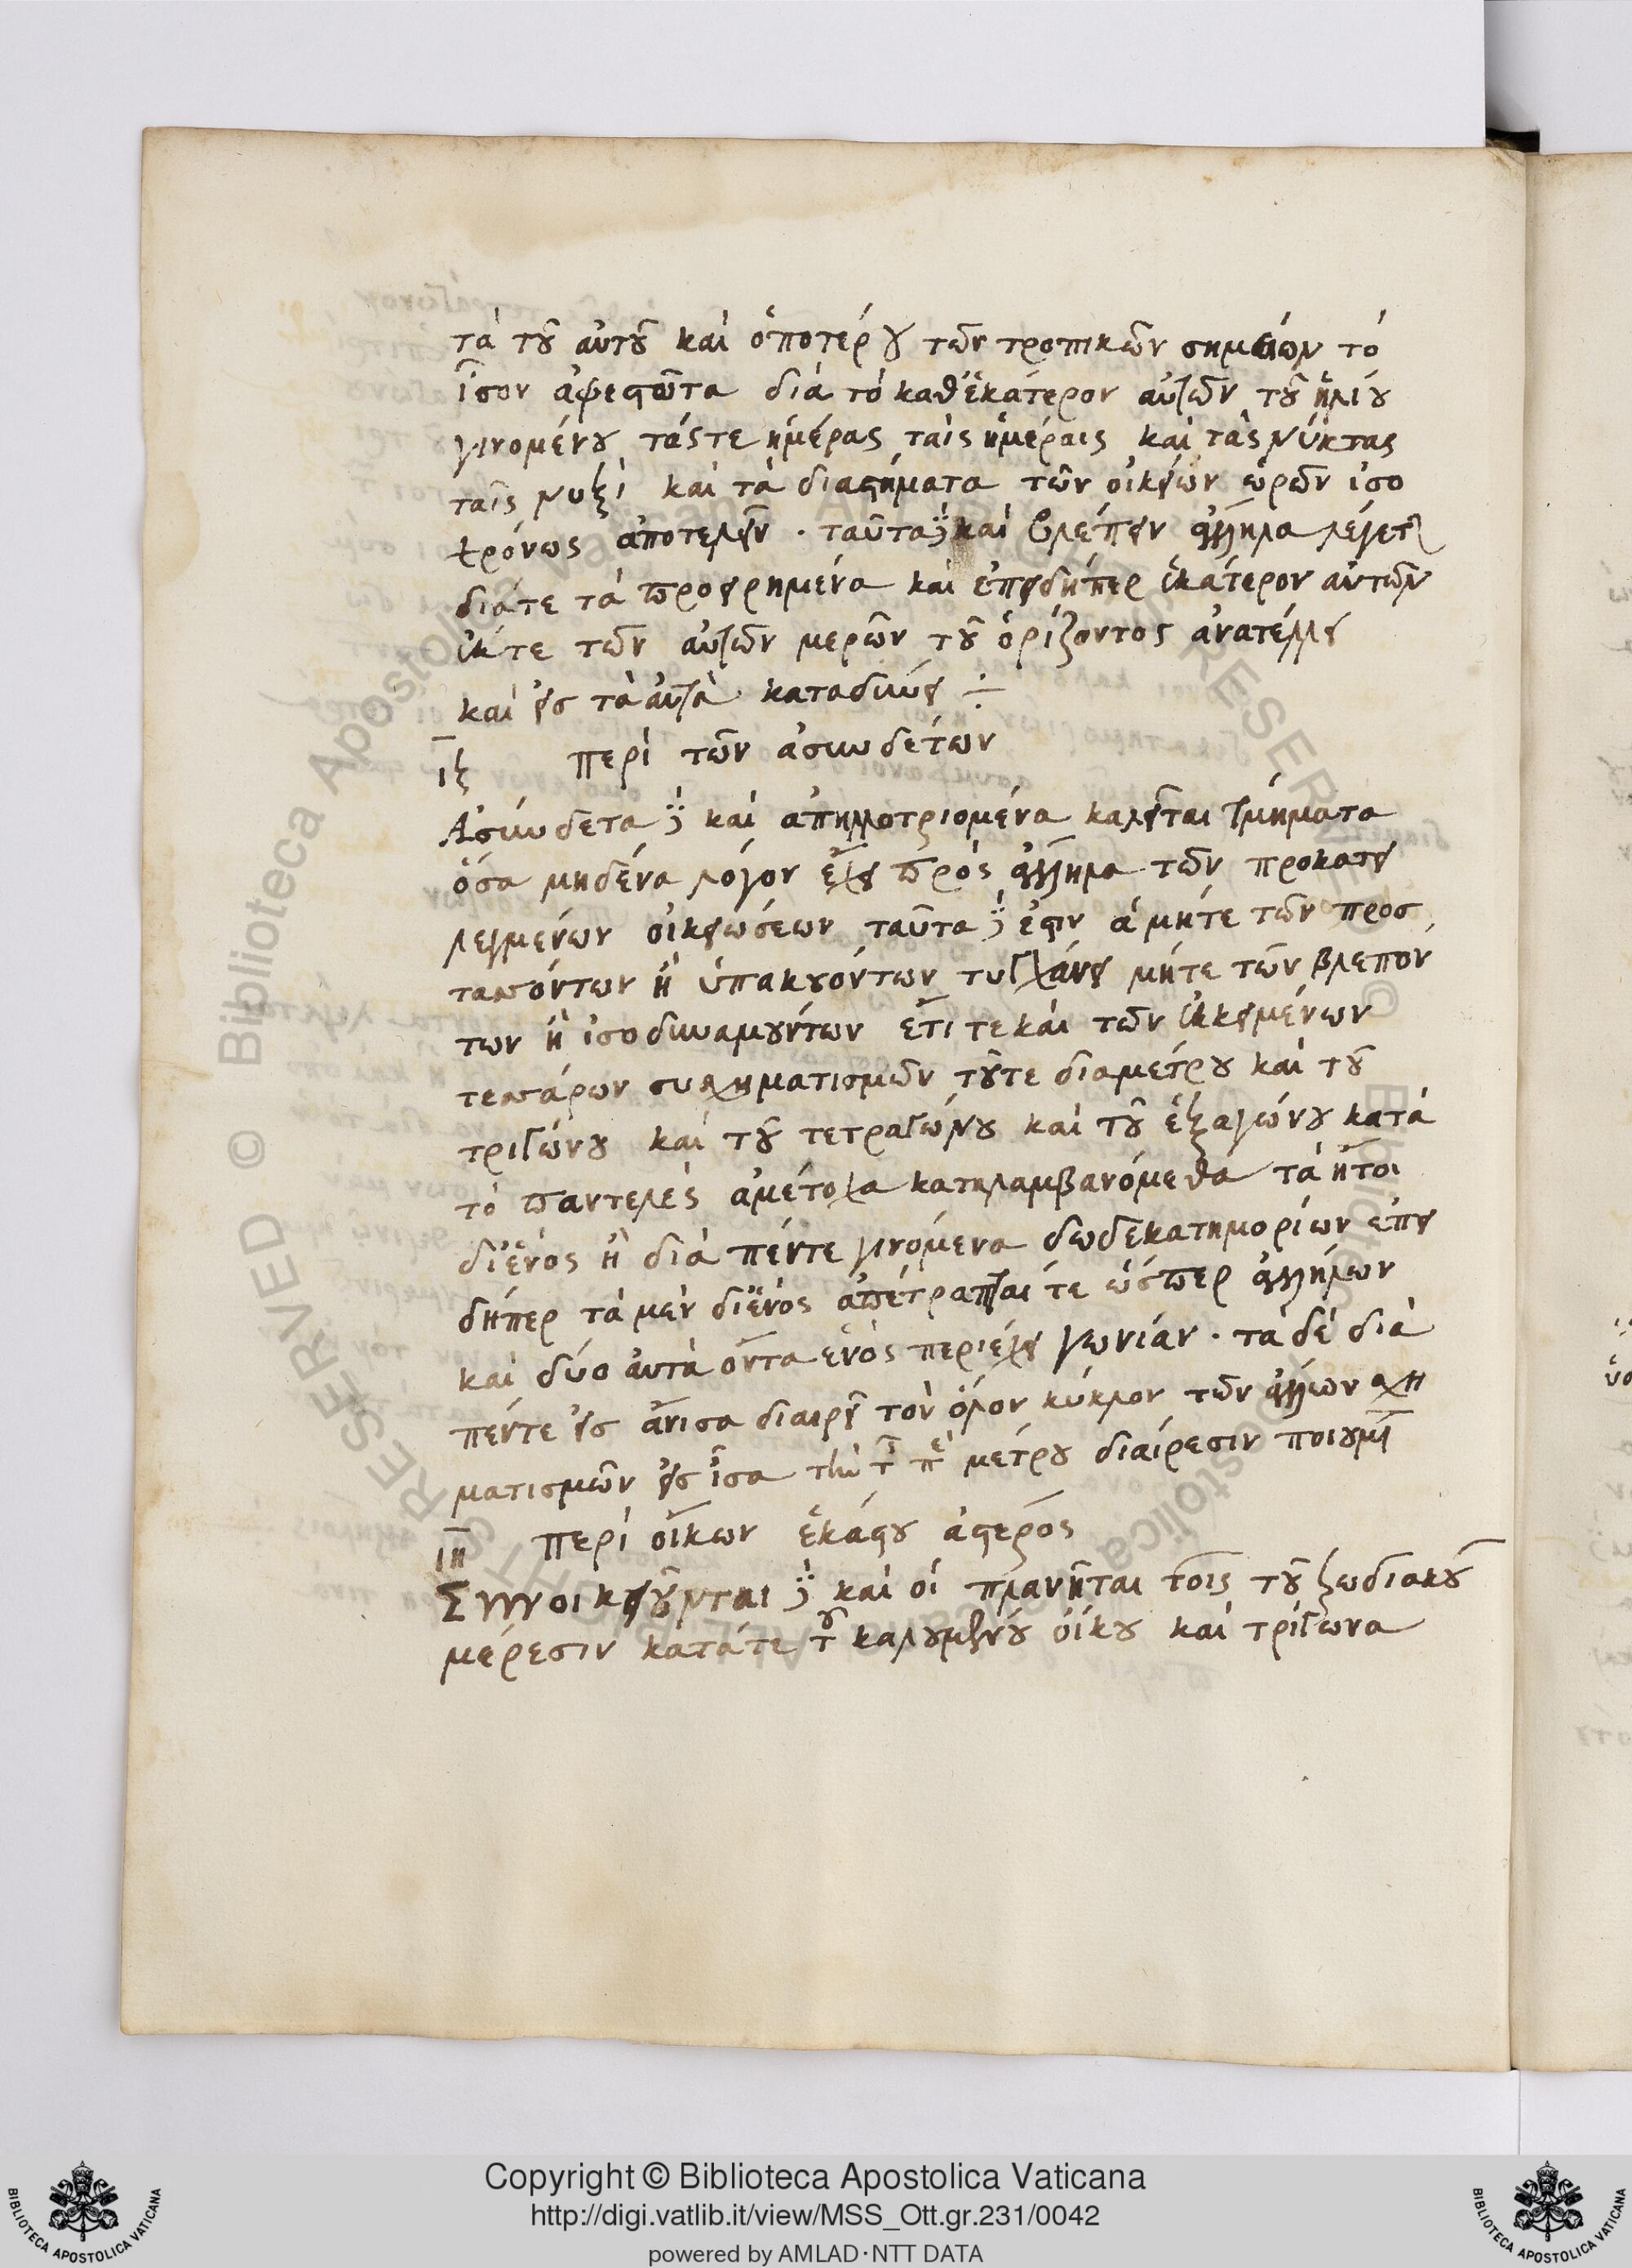 τὰ τοῦ αὐτοῦ καὶ ὁποτέρου τῶν τροπικῶν σημείων τὸ
ἴσον ἀφεστῶτα διὰ τὸ καθ' ἑκάτερον αὐτῶν τοῦ ἡλίου
γινομένου τάς τε ἡμέρας ταῖς ἡμέραις καὶ τὰς νύκτας
ταῖς νυξὶ καὶ τὰ διαστήματα τῶν οἰκείων ὡρῶν ἰσο
χρόνως ἀποτελεῖν · ταῦτα δὲ καὶ βλέπειν ἄλληλα λέγεται
διά τε τὰ προειρημένα καὶ ἐπειδήπερ ἑκάτερον αὐτῶν
ἔκ τε τῶν αὐτῶν μερῶν τοῦ ὁρίζοντος ἀνατέλλει
καὶ εἰς τὰ αὐτὰ καταδύνει ÷
ιζ περὶ τῶν ἀσυνδέτων
Ἀσύνδετα δὲ καὶ ἀπηλλοτριομένα καλεῖται τμήματα
ὅσα μηδένα λόγον ἔχει πρὸς ἄλληλα τῶν προκατει
λεγμένων οἰκειώσεων ταῦτα δέ ἐστιν ἃ μήτε τῶν προσ
τασσόντων ἢ ὑπακουόντων τυγχάνει μήτε τῶν βλεπόν
των ἢ ἰσοδυναμούντων ἔτι τε καὶ τῶν ἐκκειμένων
τεσσάρων συσχηματισμῶν τοῦ τε διαμέτρου καὶ τοῦ
τριγώνου καὶ τοῦ τετραγώνου καὶ τοῦ ἑξαγώνου κατὰ
τὸ παντελὲς ἀμέτοχα καταλαμβανόμεθα τὰ ἤτοι
δι' ἑνὸς ἢ διὰ πέντε γινόμενα δωδεκατημορίων ἐπει
δήπερ τὰ μὲν δι' ἑνὸς ἀπέτραπταί τε ὥσπερ ἀλλήλων
καὶ δύο αὐτὰ ὄντα ἑνὸς περιέχει γωνίαν · τὰ δὲ διὰ
πέντε εἰς ἄνισα διαιρεῖ τὸν ὅλον κύκλον τῶν ἄλλων σχη
ματισμῶν εἰς ἴσα τὴν τῆς περιμέτρου διαίρεσιν ποιουμένων
ιη περὶ οἴκων ἑκάστου ἀστέρος
Συνοικειοῦνται δὲ καὶ οἱ πλανῆται τοῖς τοῦ ζωδιακοῦ
μέρεσιν κατά τε τοῦ καλουμένου οἴκου καὶ τρίγωνα
Copyright © Biblioteca Apostolica Vaticana
http://digi.vatlib.it/view/MSS_Ott.gr.231/0042
powered by AMLAD·NTT DATA